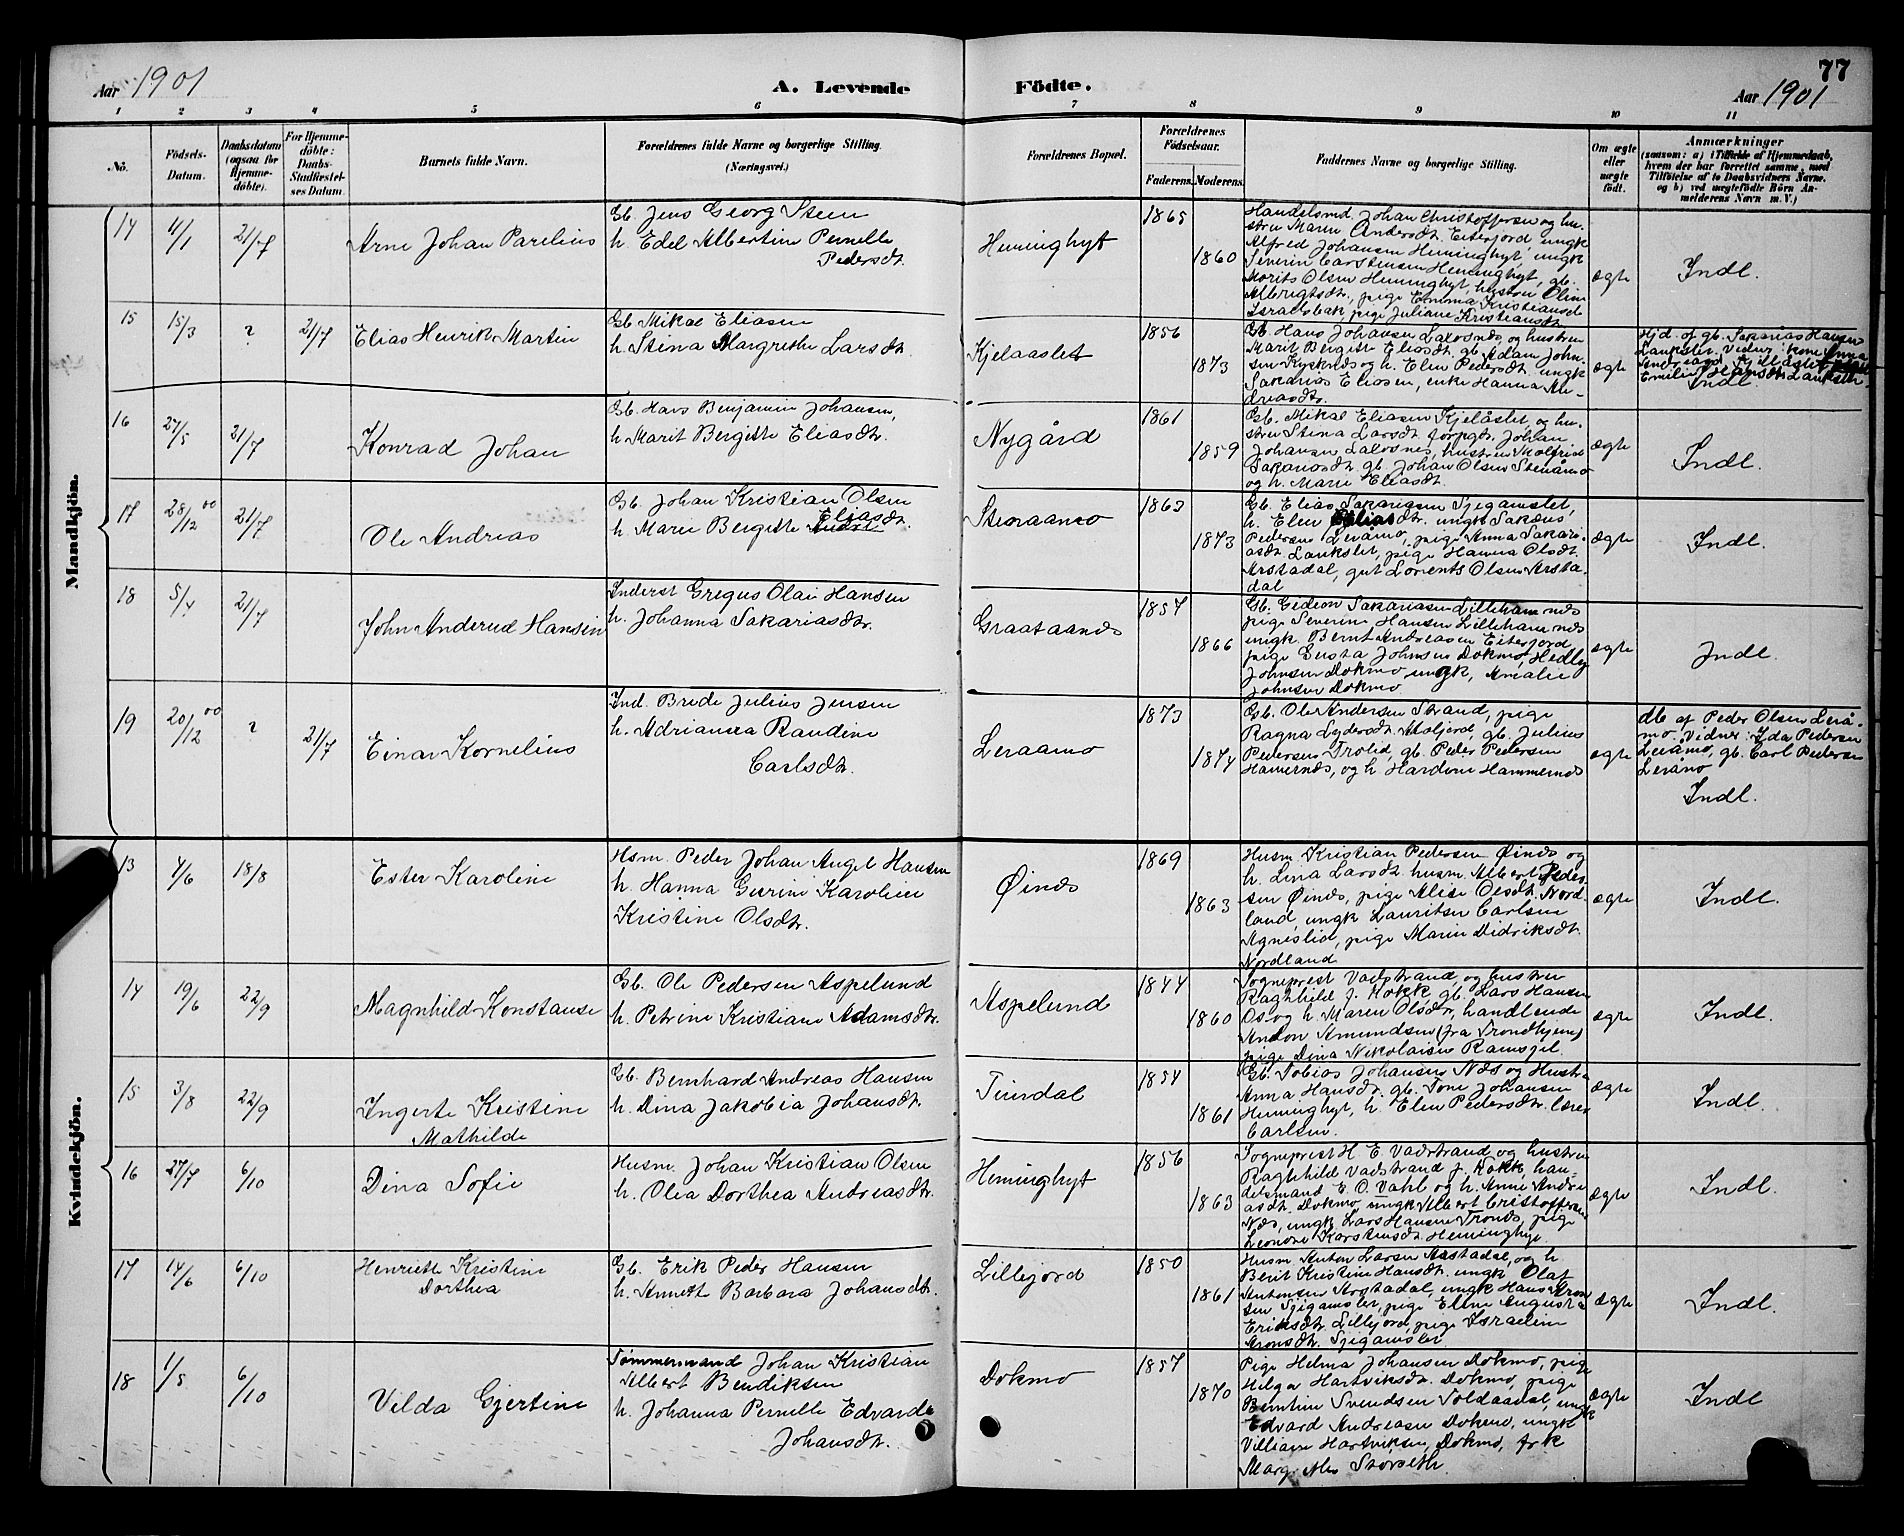 77
Aar 1901
A. Levende
Födte.
Aar 1901
1 2 3 4 5 6 7 8 9 10 11
No.
Födsels-Datum.
Daabsdatum (ogsaa for Hjemme-döbte).
For Hjemme-döbte: Daabs-Stadfæstel-ses Datum.
Barnets fulde Navn.
Forældrenes fulde Navne og borgerlige Stilling.
(Næringsvei.)
Forældrenes Bopæl.
Forældrenes Födselsaar.
Faderens. Moderens.
Faddernes Navne og borgerlige Stilling.
Om ægte eller uægte födt.
Anmærkninger
(saasom: a) i Tilfælde af Hjemmedaab,
hvem der har forrettet samme, med
Tilföielse af to Daabsvidners Navne,
og b) ved uægtefödte Börn An-
melderens Navn m. V.)
Mandkjön.
14 11/1 21/7
Arne Johan Parelius
Gb. Jens Georg Steen
h. Edel Albertine Pernelle
Pedersdt.
Heminghyt
1865
1860
Handelsmd. Johan Christoffersen og hu-
stru Maren Andersdt. Eiterfjord, ungk
Alfred Johansen Heminghyt, ungk
Severin Carstensen Heminghyt, gb.
Morits Olsen Heminghyt, hustru Oline
Albrigtsdt., pige Emma Kristiansdt
Israelsbak, pige Juliane Kristiansdt.
ægte
Indl.
15 15/3 ? 21/7
Elias Henrik Martin
Gb. Mikal Eliasen
h. Stina Margrethe Larsdt.
Kjelaaslet
1856
1873
Gb. Hans Johansen Laxosnæs og hustru
Marit Bergitte Eliasdt. gb. Adam John-
sen Kysknæs og h. Elen Pedersdt. ungk
Sakarias Eliassen, enke Hanna An-
dreasdt.
ægte
Hjd. af gb. Sakarias Hansen
Lankslet. Vidner: kone Anna
Indl.
16 27/5 21/7
Konrad Johan
Gb. Hans Benjamin Johansen,
h. Marit Bergitte Eliasdt.
Nygård
1861
1859
Gb. Mikal Eliasen Kjelåslet, og hu-
stru Stina Larsdt. forpgtr. Johan
Johansen Laxosnes, hustru Molfrid
Sakariasdt. gb. Johan Olsen Stenåmo
og h. Marie Eliasdt.
ægte
Indl.
17 28/12 00 21/7
Ole Andreas
Gb. Johan Kristian Olsen
h. Marie Bergitte Eliasdt.
Stenaamo
1863
1873
Gb. Elias Sakariasen Sjegamslet,
h. Elen Eliasdt. ungk Sakæus
Pedersen Leråmo, pige Anna Sakari-
asdt. Lankslet, pige Hanna Olsdt.
Arstadal, gut Lorents Olsen Arsta-
dal
ægte
Indl.
18 5/4 21/7
John Anderud Hansen
Inderst Gregus Olai Hansen
h. Johanna Sakariasdtr.
Graataanæs
1857
1866
Gb. Gideon Sakariasen Lillehamnæs
pige Severine Hansen Lillehamnæs
ungk. Bernt Andreasen Eiterfjord
pige Gusta Johnsen Dokmo, Hedley
Johnsen Dokmo ungk, Amalie
Johnsen Dokmo
ægte
Indl.
19 20/12 00 ? 21/7
Einar Kornelius
Ind. Brede Julius Jensen
h. Adrianna Randine
Carlsdt.
Leraamo
1873
1874
Gb. Ole Andersen Strand, pige
Ragna Lydersdt. Molfjord, gb. Julius
Pedersen Trolid, gb. Peder Pedersen
Hamernæs, og h Hardine Hammernæs
ægte
db af Peder Olsen Lerå-
mo. Vidner: Ida Pedersen
Leråmo, gb. Carl Pedersen
Leråmo
Indl.
Kvindekjön.
13 4/6 18/8
Ester Karoline
Hsm. Peder Johan Angel Hansen
h. Hanna Gurine Karoline
Kristine Olsdtr.
Øinæs
1869
1863
Husm. Kristian Pedersen Øinæs og
h. Lina Larsdt. husm. Albert Peder-
sen Øinæs, pige Alise Olsdt. Nord-
land, ungk Lauritsen Carlsen
Agneslid, pige Maren Didriksdt.
Nordland
ægte
Indl.
14 19/6 22/9
Magnhild Konstanse
Gb. Ole Pedersen Aspelund
h. Petrine Kristiane Adamsdtr.
Aspelund
1844
1860
Sogneprest Vadstrand og hustru
Raghhild f. Kokk gb. Lars Hansen
Os og h. Maren Olsdtr, handlende
Anton Amundsen (fra Trondhjem)
pige Dina Nikolaisen Ramsjel.
ægte
Indl.
15 3/8 22/9
Ingerte Kristine
Mathilde
Gb. Bernhard Andreas Hansen
h. Dina Jakobia Johansdt.
Tinndal
1854
1861
Gb. Tobias Johansen Næs og Hustr.
Anna Hansdt. gb. Tone Johansen
Heminghyt, h. Elen Pedersdtr. lærer
Carlsen.
ægte
Indl.
16 27/7 6/10
Dina Sofie
Husm. Johan Kristian Olsen
h. Olea Dorthea Andreasdtr.
Heminghyt
1856
1863
Sogneprest H. E. Vadstrand og hustru
Raghhild Vadstrand f. Kokk, han-
delsmand E. O. Vahl og h. Anne Andre-
asdt. Dokmo, ungk Albert Cristoffersen
Næs, ungk. Lars Hansen Tronæs, pige
Leonore Karstensdt. Heminghyt
ægte
Indl.
17 14/6 6/10
Henriette Kristine
Dorthea
Gb. Erik Peder Hansen
h. Annette Barbara Johansdtr.
Lillefjord
1850
1861
Husm Anton Larsen Aastadal, og h
Berit Kristine Hansdt. ungk Olaf
Antonsen Arstadal, ungk Hans Aron-
sen Sjigamslet, pige Eline Augusta
Eriksdt. Lillefjord, pige Israeline
Aronsdt. Sjigamslet
ægte
Indl.
18 1/5 6/10
Vilda Gjertine
Tømmermand Johan Kristian
Albert Bendiksen
h. Johanna Pernelle Edvarda
Johansdt.
Dokmo
1857
1870
Pige Helma Johansen Dokmo, pige
Helga Hartviksdt. Dokmo, pige
Berntine Svendsen Soldaadal, ungk
Edvard Andreasen Dokmo, ungk
Villiam Hartviksen, Dokmo, frk
Marg. Storseth
ægte
Indl.